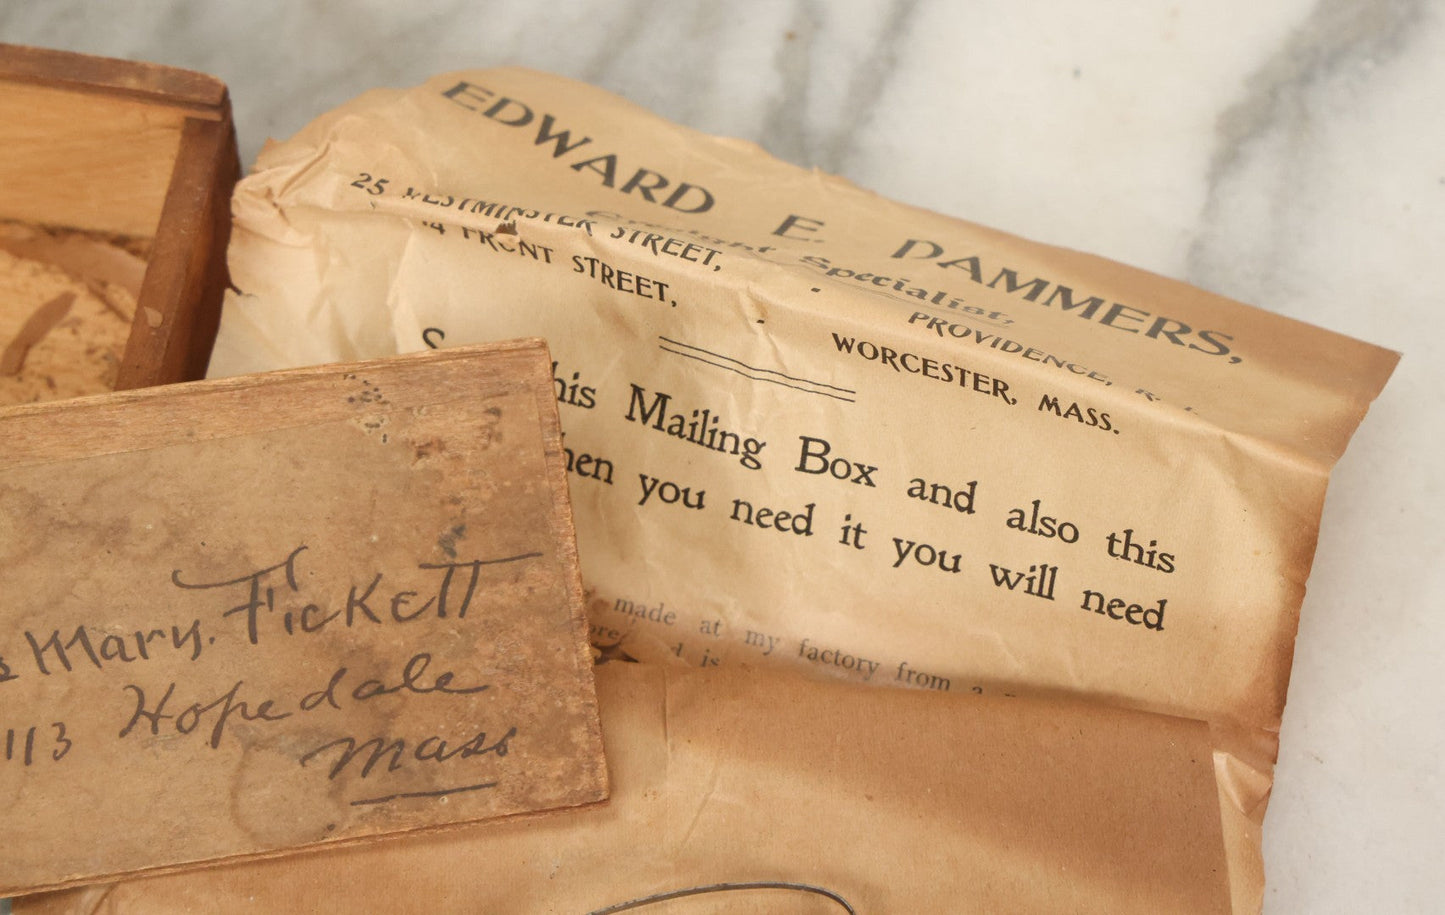 EDWARD E. DAMMERS,
Eyesight Specialist,
25 WESTMINSTER STREET, PROVIDENCE, R. I.
14 FRONT STREET, WORCESTER, MASS.
his Mailing Box and also this
hen you need it you will need
made at my factory from a
d is
s Mary. Fickett
113 Hopedale
Mass